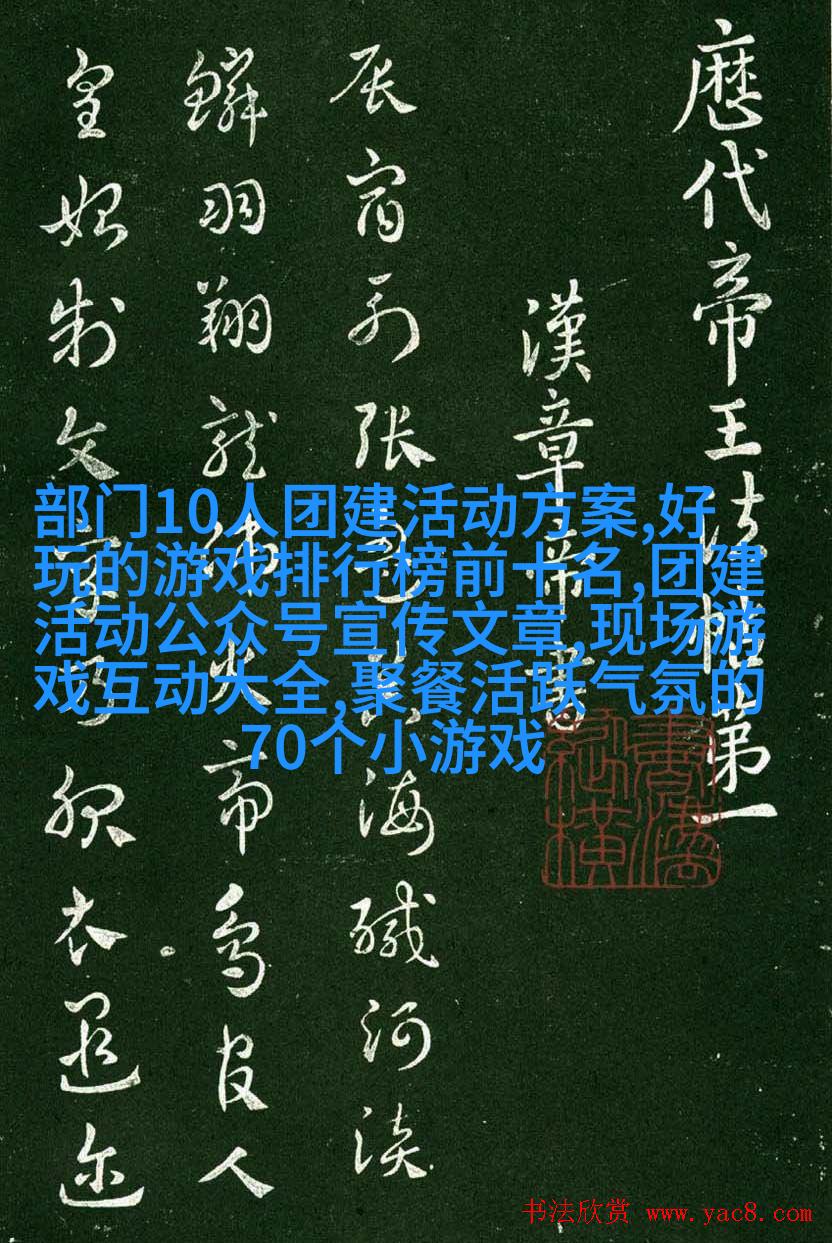 厯代帝王法帖第一
漢章帝書
辰宿列張海鹹河淡
鱗羽翔龍師火帝鳥官人
皇始制文乃服衣遐迩
部门10人团建活动方案,好
玩的游戏排行榜前十名,团建
活动公众号宣传文章,现场游
戏互动大全,聚餐活跃气氛的
70个小游戏
书法欣赏 www.yac8.com